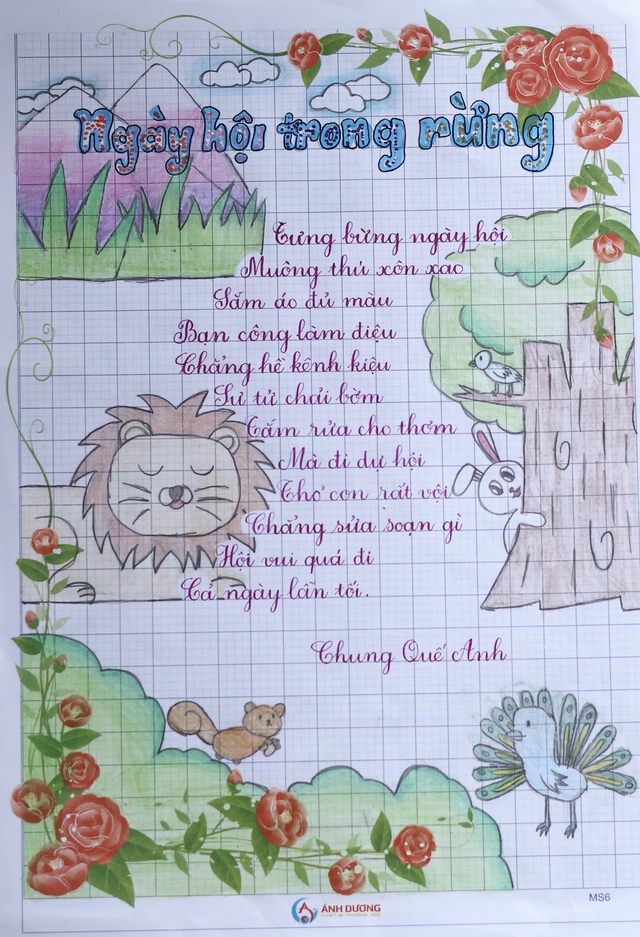 Ngày hội trong rừng
Tưng bừng ngày hội
Muông thú xôn xao
Sắm áo đủ màu
Bạn công làm điệu
Chẳng hề kênh kiệu
Sư tử chải bờm
Tắm rửa cho thơm
Mà đi dự hội
Thỏ con rất vội
Chẳng sửa soạn gì
Hội vui quá đi
Cả ngày lẫn tối.
Chung Quế Anh
ÁNH DƯƠNG
MS6